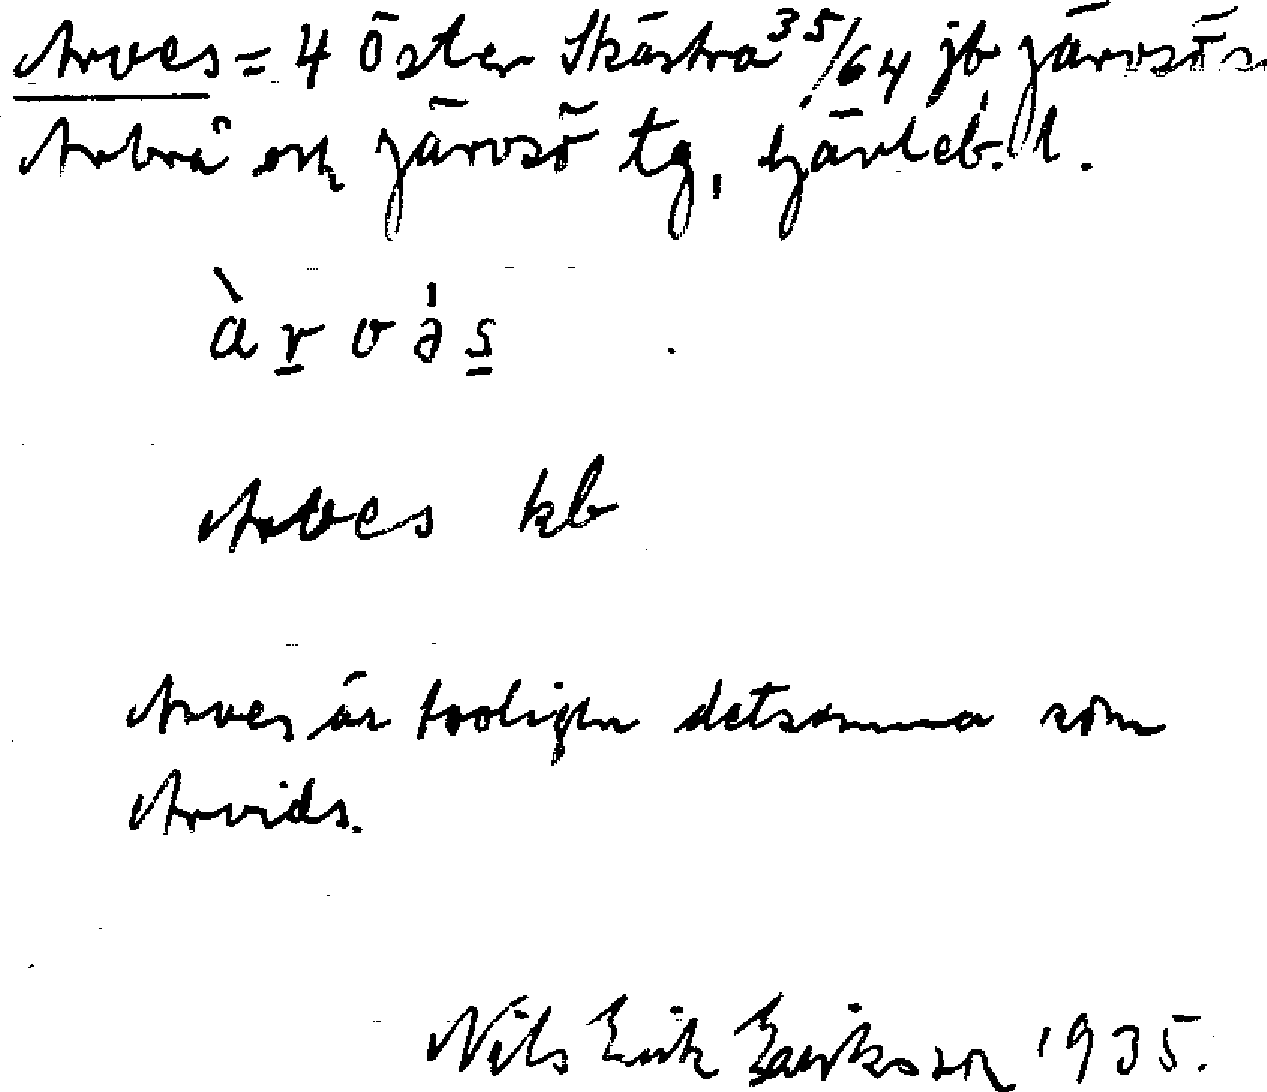 Arves = 4 Öster Skästra 35/64 jb Järvsö sn
Arbrå och Järvsö tg, Gävleb. l.
àrvə́s
Arves kb
Arves är troligen detsamma som
Arvids.
Nils Erik Eriksson 1935.